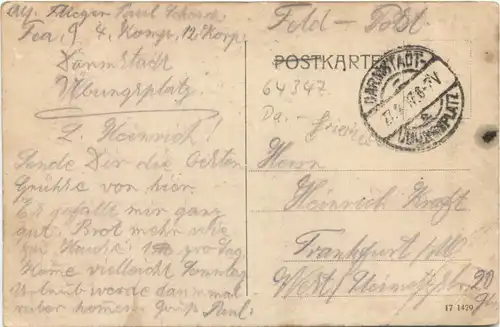 Abs. Flieger Paul Schorse
Fea 9 4. Komp. 12. Korp.
Darmstadt
Übungsplatz
L. Heinrich!
Sende Dir die besten
Grühse von hier.
Es gefällt mir ganz
gut. Brot mehr wie
zu Hause: pro Tag
Kome vielleicht Sonntag
Urlaub werde dan mal
rüber kommen. Gruß Paul.
Feld-Post
POSTKARTE
DARMSTADT-
ÜBUNGSPLATZ
64347
Da. - Griesh
Herrn
Heinrich Kraft
Frankfurt /M
West
17 1420